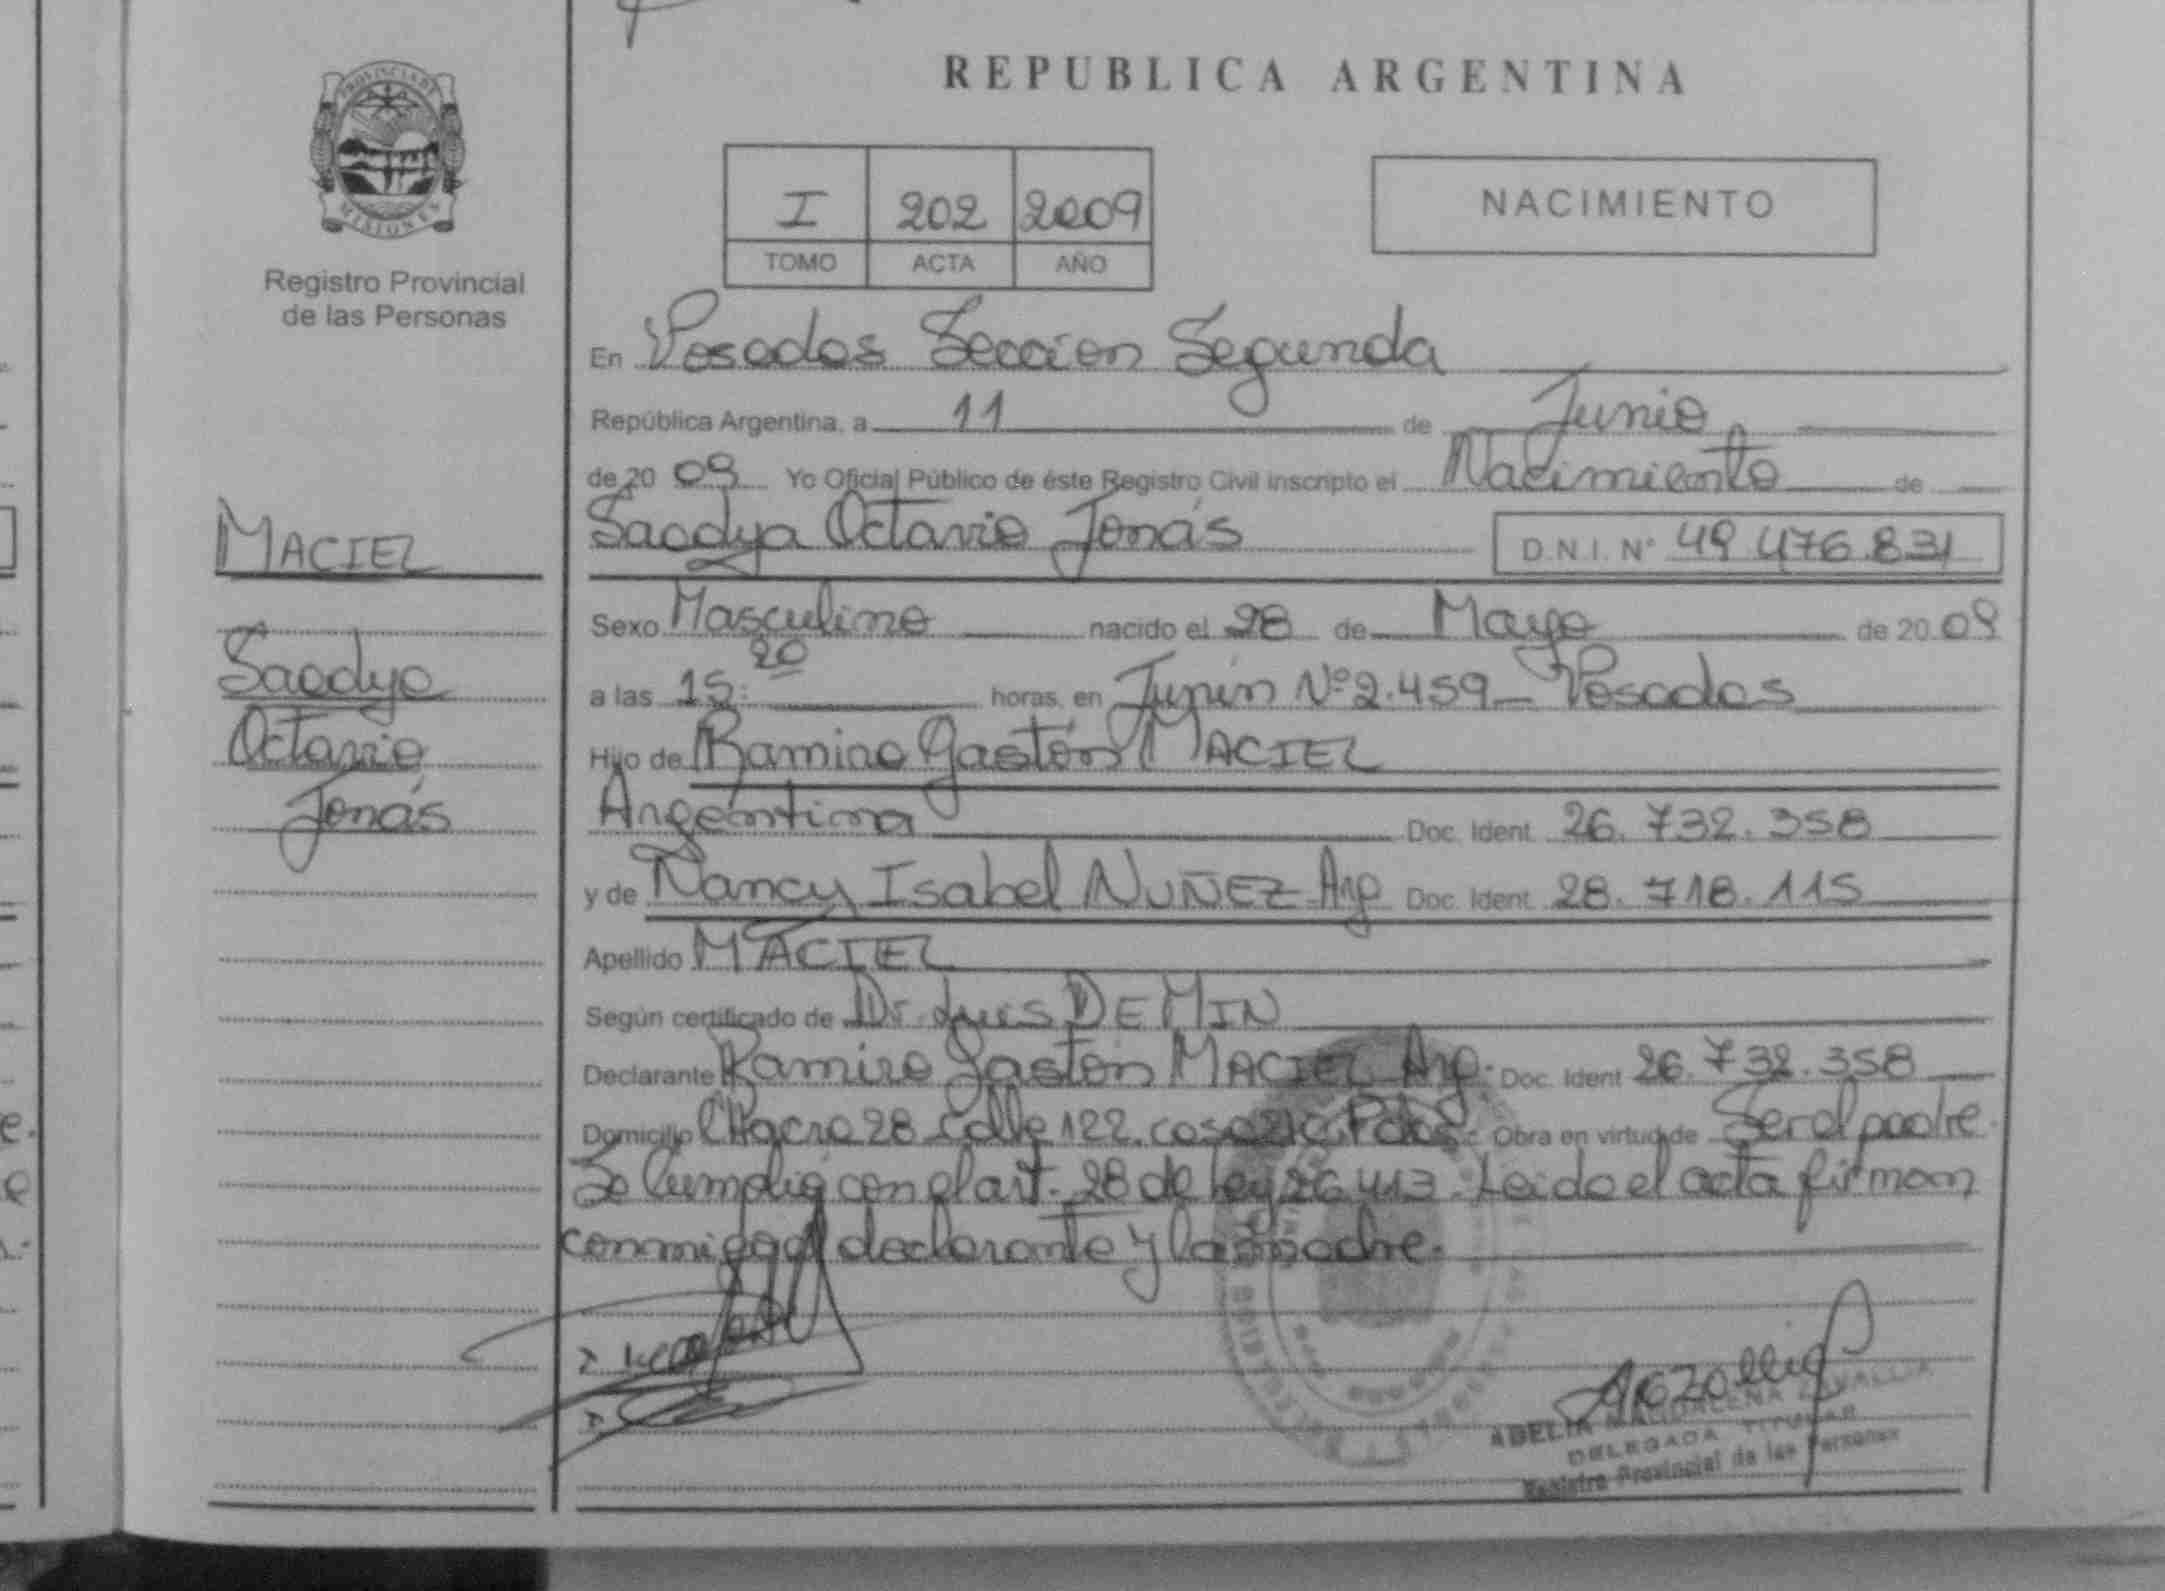 REPUBLICA ARGENTINA
PROVINCIA DE
MISIONES
Registro Provincial
de las Personas
I 202 2009
TOMO ACTA AÑO
NACIMIENTO
En Posadas Seccion Segunda
República Argentina, a 11 de Junio
de 20 09 Yo Oficial Público de éste Registro Civil inscripto el Nacimiento de
Saadya Octavio Jonás D.N.I. Nº 49.476.831
MACIEL
Saadya
Octavio
Jonás
Sexo Masculino nacido el 28 de Mayo de 20 09
a las 15:20 horas, en Junín Nº 2.459 - Posadas
Hijo de Ramiro Gastón MACIEL
Argentina Doc. Ident. 26.732.358
y de Nancy Isabel NUÑEZ - Arg Doc. Ident. 28.718.115
Apellido MACIEL
Según certificado de Dr. Luis DE MIN
Declarante Ramiro Gastón MACIEL Arg. Doc. Ident 26.732.358
Domicilio CHacra 28 Calle 122. casa Pdas. Obra en virtud de Ser el padre.
Se Cumplió con el art. 28 de ley 26.413. Leido el acta firman
conmigo el declarante y la madre.
ADELIA MAGDALENA ZAVALLIA
DELEGADA TITULAR
Registro Provincial de las Personas